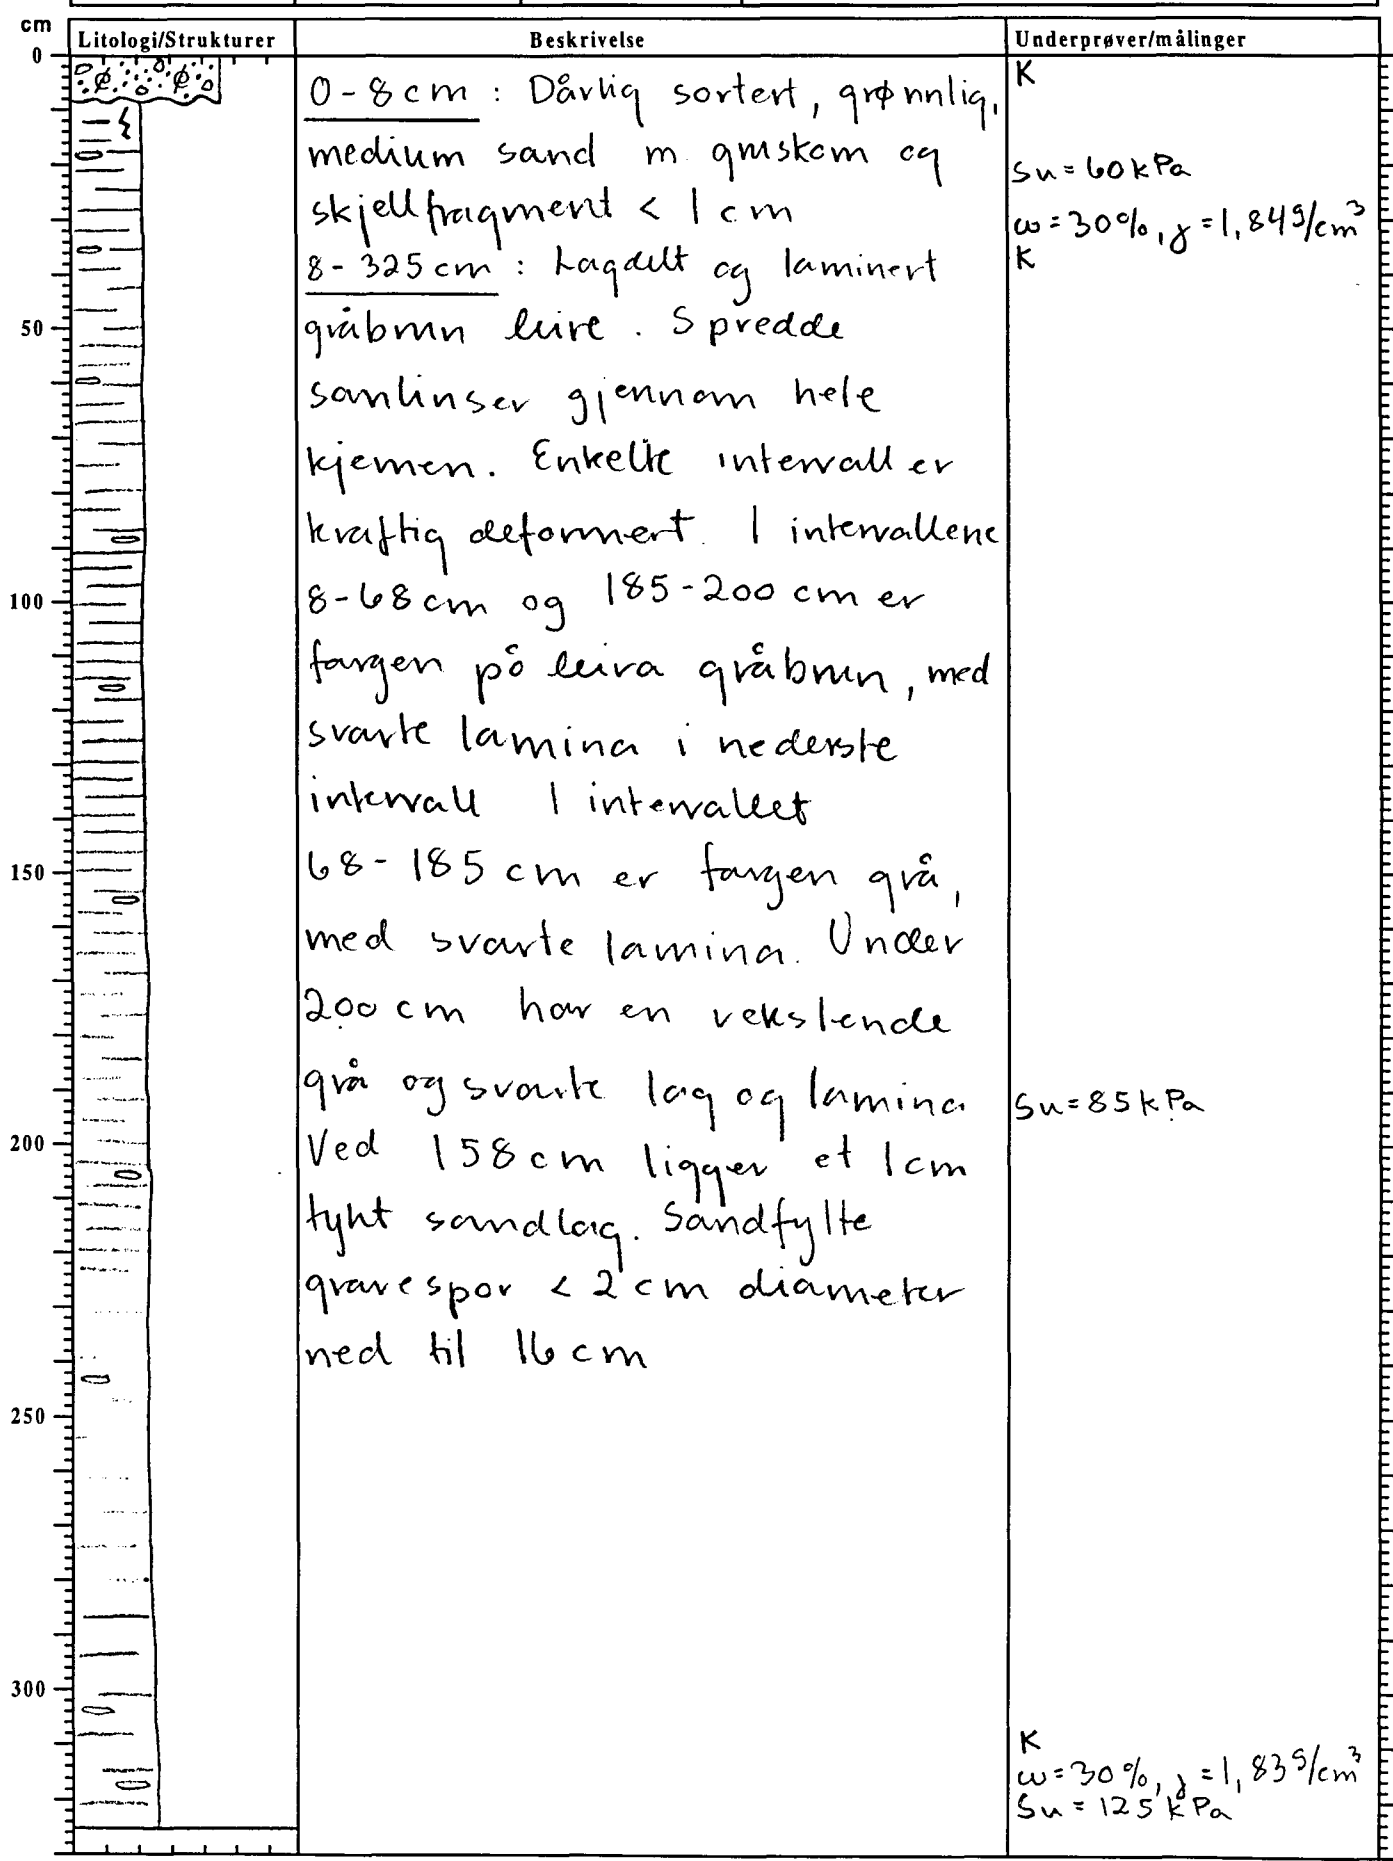 cm
Litologi/Strukturer
Beskrivelse
Underprøver/målinger
0
50
100
150
200
250
300
0-8cm : Dårlig sortert, grønnlig,
medium sand m gruskorn og
skjellfragment < 1 cm
8-325cm : Lagdelt og laminert
gråbrun leire . Spredde
sanlinser gjennom hele
kjernen. Enkelte intervall er
kraftig deformert. I intervallene
8-68cm og 185-200 cm er
fargen på leira gråbrun, med
svarte lamina i nederste
intervall I intervallet
68-185 cm er fargen grå,
med svarte lamina. Under
200 cm har en vekslende
grå og svarte lag og lamina
Ved 158cm ligger et 1cm
tykt sandlag. Sandfylte
gravespor < 2 cm diameter
ned til 16cm
K
Su=60kPa
ω=30%, γ=1,84g/cm³
K
Su=85kPa
K
ω=30%, γ=1,83g/cm³
Su=125kPa